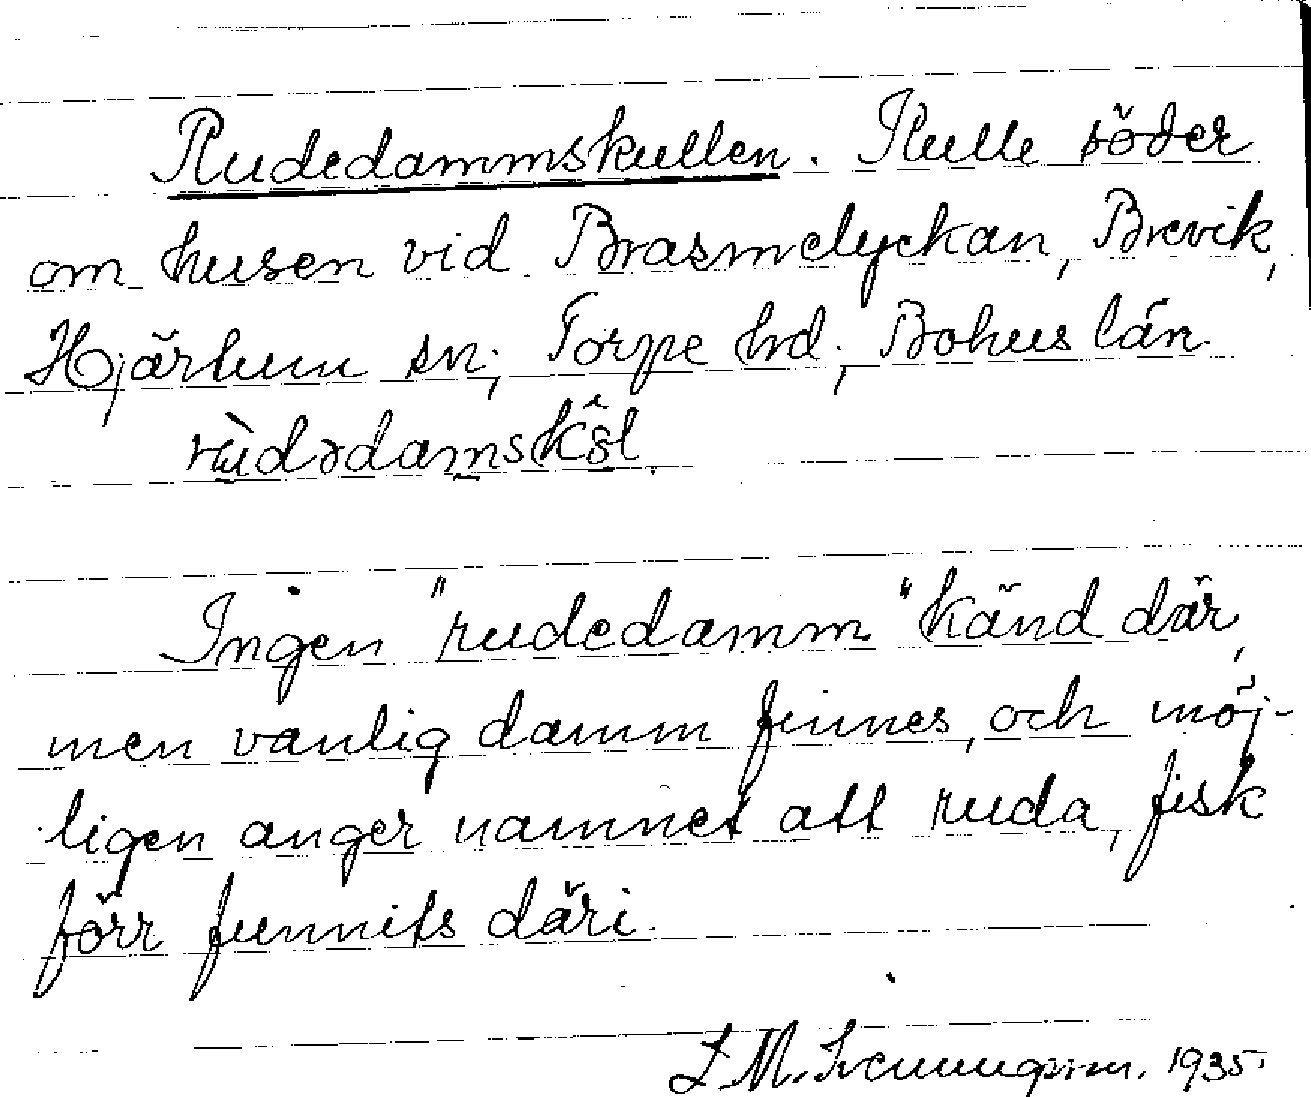 Rudedammskullen. Kulle söder
om husen vid Brasmelyckan, Brevik,
Hjärtum sn, Torpe hd, Bohus län.
Ingen "rudedamm" känd där,
men vanlig damm finnes, och möj-
ligen anger namnet att ruda, fisk
förr funnits däri.
1935.